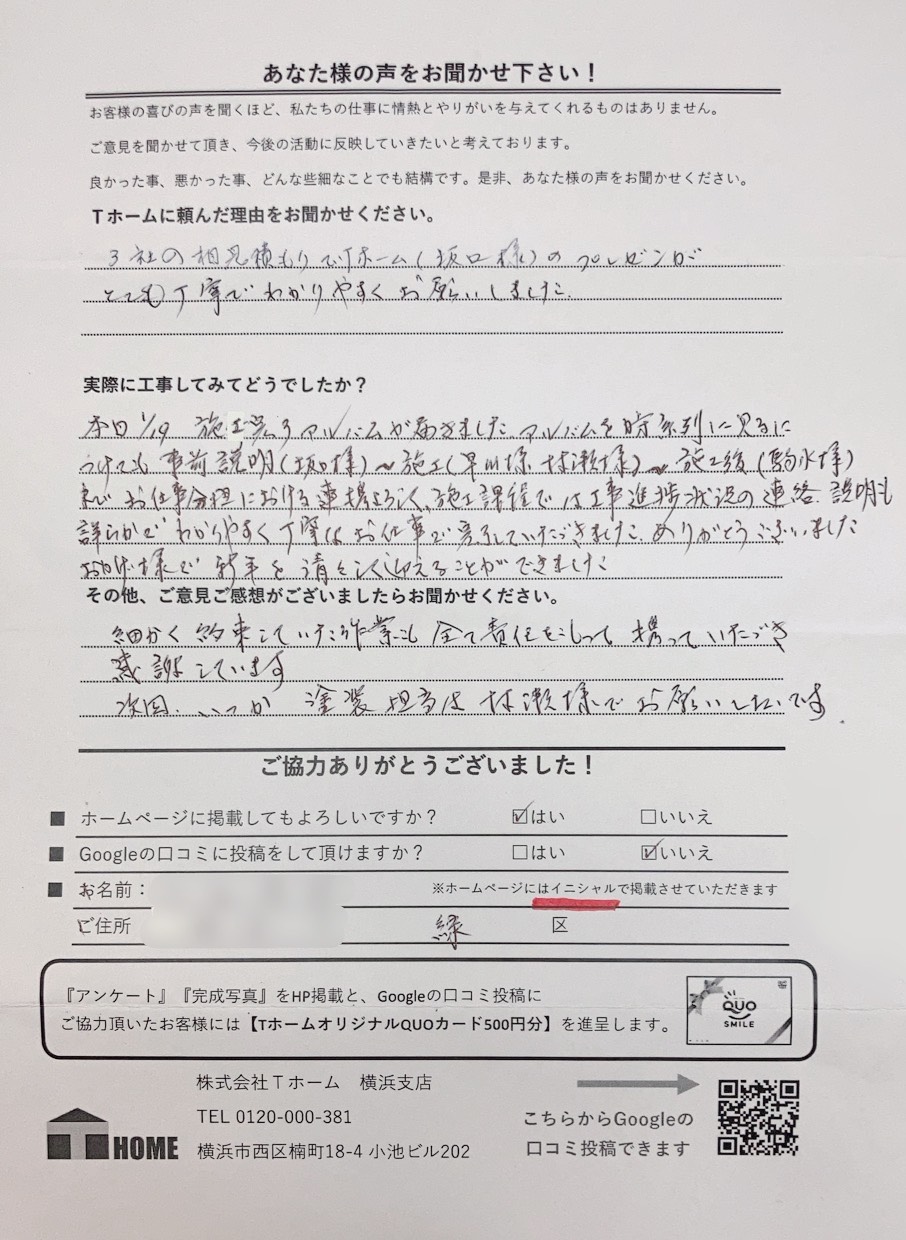 あなた様の声をお聞かせ下さい！
お客様の喜びの声を聞くほど、私たちの仕事に情熱とやりがいを与えてくれるものはありません。
ご意見を聞かせて頂き、今後の活動に反映していきたいと考えております。
良かった事、悪かった事、どんな些細なことでも結構です。是非、あなた様の声をお聞かせください。
Tホームに頼んだ理由をお聞かせください。
3社の相見積もりでTホーム(坂口様)のプレゼンが
とても丁寧でわかりやすくお願いしました.
実際に工事してみてどうでしたか？
本日1/19 施工完了アルバムが届きました.アルバムを時系列に見るに
つけても 事前説明(坂口様)〜施工(早川様 村瀬様)〜施工後(駒水様)
まで お仕事分担における連携よろしく、施工課程では工事進捗状況の連絡、説明も
詳らかで わかりやすく丁寧なお仕事で完了していただきました.ありがとうございました
おかげ様で 新年を清々しく迎えることができました
その他、ご意見ご感想がございましたらお聞かせください。
細かく約束していた作業も全て責任をもって携っていただき
感謝しています
次回、いつか 塗装担当は 村瀬様でお願いしたいです.
ご協力ありがとうございました！
■ ホームページに掲載してもよろしいですか？ ☑はい □いいえ
■ Googleの口コミに投稿をして頂けますか？ □はい ☑いいえ
■ お名前： ※ホームページにはイニシャルで掲載させていただきます
ご住所 緑 区
『アンケート』『完成写真』をHP掲載と、Googleの口コミ投稿に
ご協力頂いたお客様には【TホームオリジナルQUOカード500円分】を進呈します。
QUO
SMILE
株式会社Tホーム 横浜支店
TEL 0120-000-381
横浜市西区楠町18-4 小池ビル202
T HOME
こちらからGoogleの
口コミ投稿できます